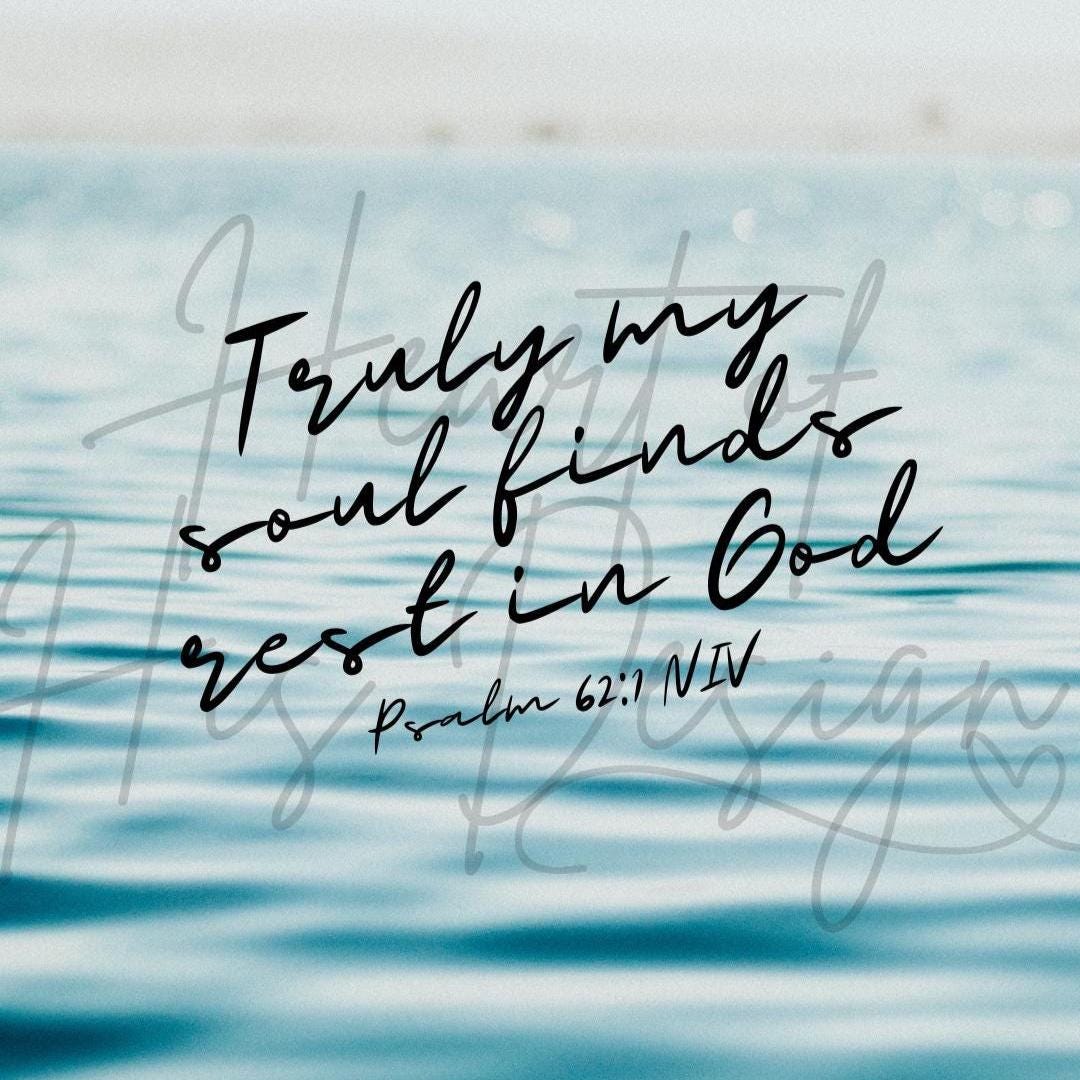 Truly my
soul finds
rest in God
Psalm 62:1 NIV
Heart of
His Design